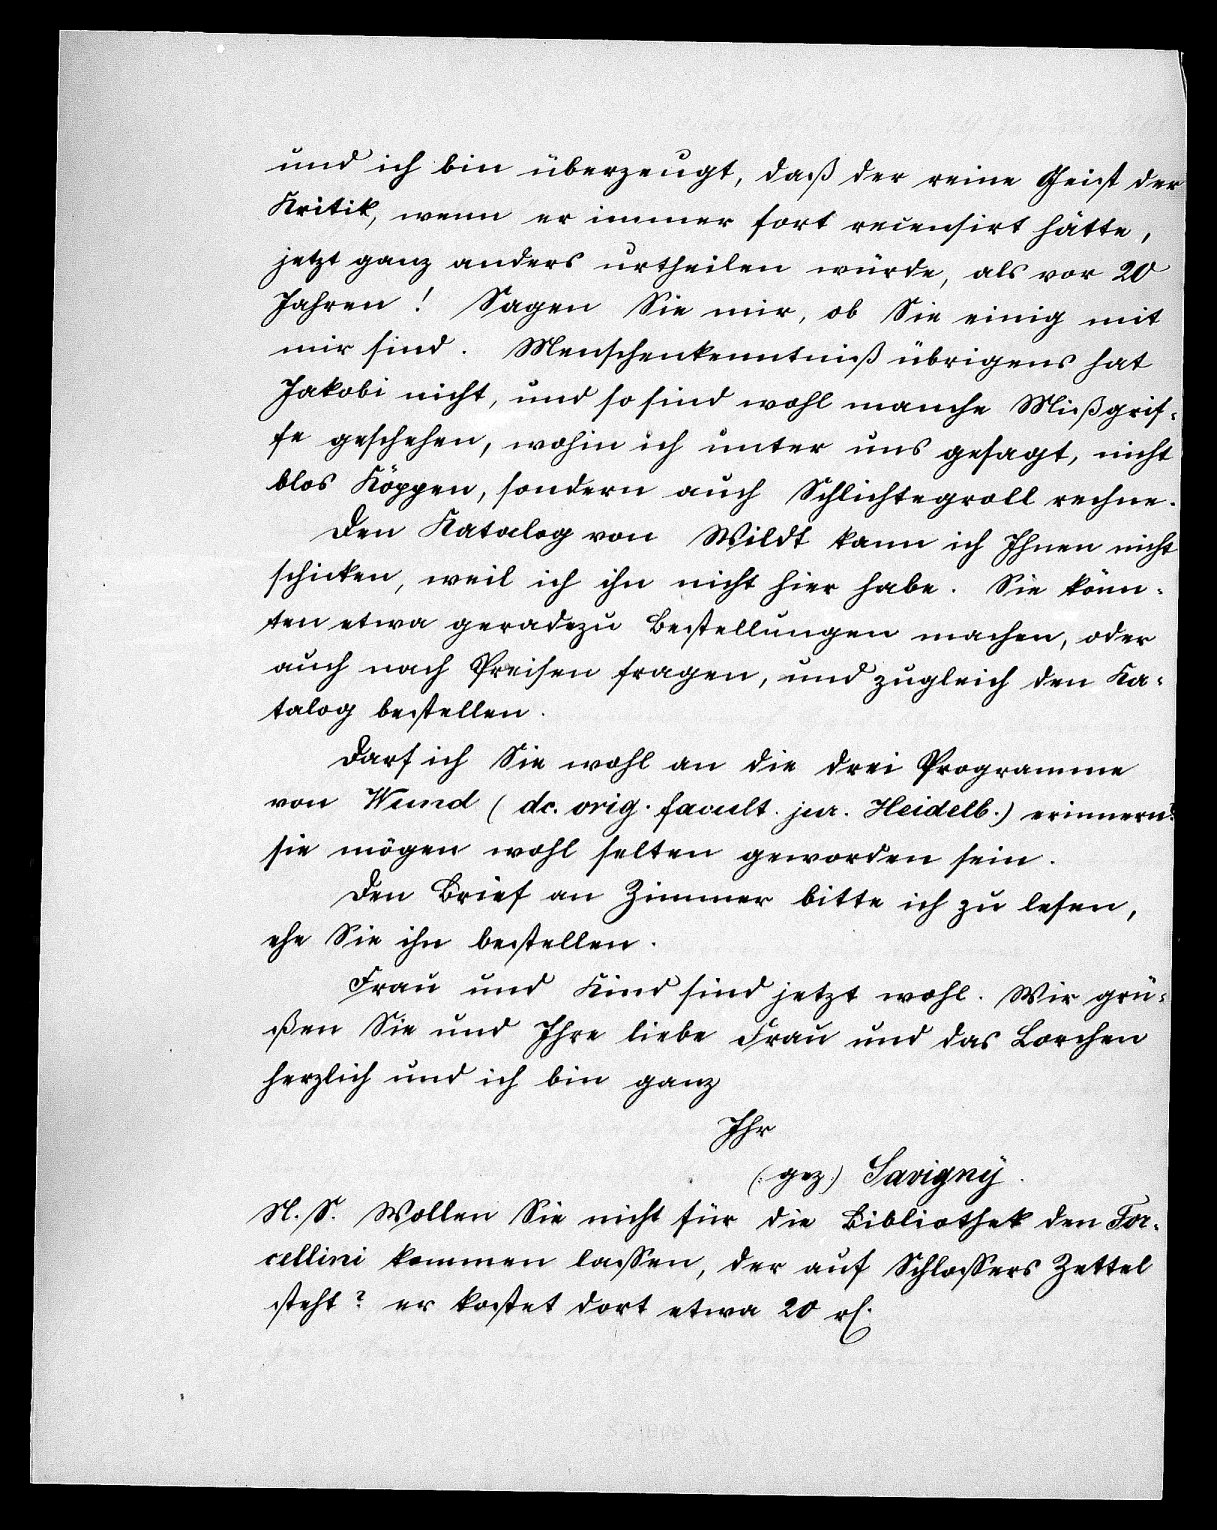 und ich bin überzeugt, daß der reine Geist der
Kritik, wenn er immer fort recensirt hätte,
jetzt ganz anders urtheilen würde, als vor 20
Jahren! Sagen Sie mir, ob Sie einig mit
mir sind. Menschenkenntniß übrigens hat
Jakobi nicht, und so sind wohl manche Mißgrif-
fe geschehen, wohin ich unter uns gesagt, nicht
blos Köppen, sondern auch Schlichtegroll rechne.
Den Katalog von Wildt kann ich Ihnen nicht
schicken, weil ich ihn nicht hier habe. Sie könn-
ten etwa geradezu Bestellungen machen, oder
auch nach Preisen fragen, und zugleich den Ka-
talog bestellen.
Darf ich Sie wohl an die drei Programme
von Wund (dc. orig. facult. jur. Heidelb.) erinnern?
sie mögen wohl selten geworden sein.
Den Brief an Zimmer bitte ich zu lesen,
ehe Sie ihn bestellen.
Frau und Kind sind jetzt wohl. Wir grü-
ßen Sie und Ihre liebe Frau und das Lorchen
herzlich und ich bin ganz
Ihr
(: gez.) Savigny.
N. S. Wollen Sie nicht für die Bibliothek den For-
cellini kommen lassen, der auf Schlossers Zettel
steht? er kostet dort etwa 20